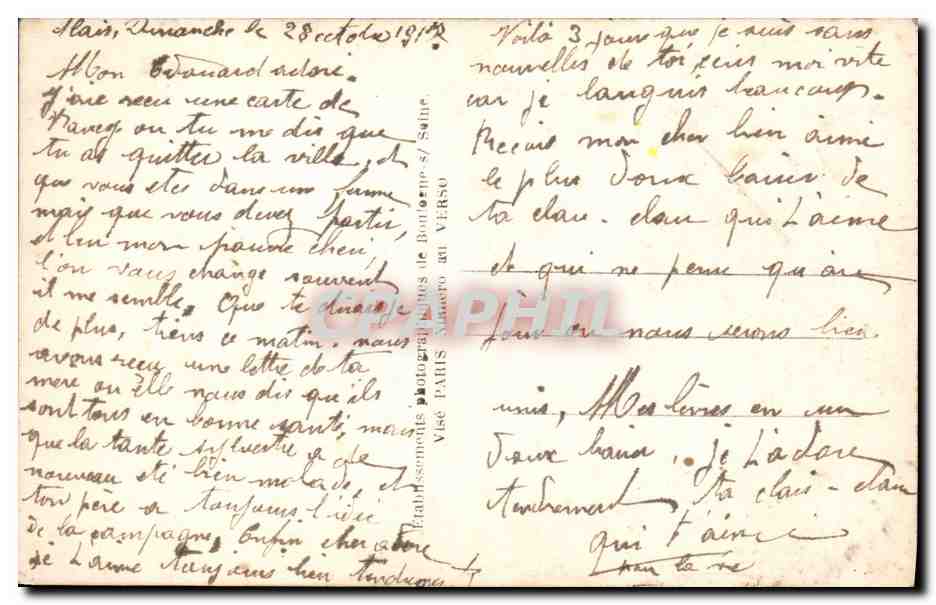 Alais, Dimanche le 28 octobre 1917
Mon Edouard adoré.
J'aie reçu une carte de
ou tu me dis que
tu as quitter la ville, et
que vous etes dans une ferme
mais que vous devez partir,
et lui mon pauvre cheri,
l'on vous change souvent
il me semble. Que te dirai je
de plus, tiens ce matin. nous
avons reçu une lettre de ta
mere ou elle nous dis qu'ils
sont tous en bonne santé, mais
que la tante sylvestre a de
nouveau eté bien malade, et
ton père a toujours l'idée
de la campagne, Enfin cher adoré
je t'aime toujours bien tendrement
Etablissements photographiques de Boulogne s/ Seine.
Visé PARIS Numéro au VERSO
Voilà 3 jours que je suis sans
nouvelles de toi, ecris moi vite
car je languis beaucoup.
Reçois mon cher bien aimé
le plus doux baiser de
ta clau - clau qui t'aime
et qui ne pense qu'au
jour ou nous serons bien
unis, Mes lèvres en un
doux baiser, je t'adore
tendrement ta clau - clau
qui t'aime
pour la vie
CPAPHIL